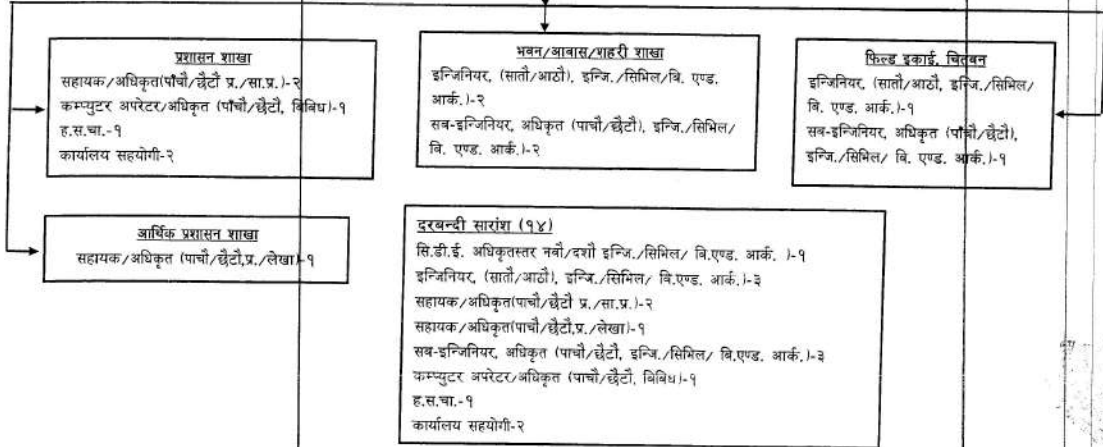 प्रशासन शाखा
सहायक/अधिकृत(पाँचौ/छैटौ प्र./सा.प्र.)-२
कम्प्युटर अपरेटर/अधिकृत (पाँचौ/छैटौ, बिबिध)-१
ह.स.चा.-१
कार्यालय सहयोगी-२
भवन/आवास/शहरी शाखा
इन्जिनियर, (सातौ/आठौ), इन्जि./सिभिल/बि. एण्ड.
आर्क.)-२
सब-इन्जिनियर, अधिकृत (पाचौ/छैटौ), इन्जि./सिभिल/
बि. एण्ड. आर्क.)-२
फिल्ड इकाई, चितवन
इन्जिनियर, (सातौ/आठौ, इन्जि./सिभिल/
बि. एण्ड. आर्क.)-१
सब-इन्जिनियर, अधिकृत (पाँचौ/छैटौ),
इन्जि./सिभिल/ बि. एण्ड. आर्क.)-१
आर्थिक प्रशासन शाखा
सहायक/अधिकृत (पाचौ/छैटौ,प्र./लेखा)-१
दरबन्दी सारांश (१४)
सि.डी.ई. अधिकृतस्तर नवौ/दशौ इन्जि./सिभिल/ बि.एण्ड. आर्क. )-१
इन्जिनियर, (सातौ/आठौ), इन्जि./सिभिल/ बि.एण्ड. आर्क.)-३
सहायक/अधिकृत(पाचौ/छैटौ प्र./सा.प्र.)-२
सहायक/अधिकृत(पाचौ/छैटौ,प्र./लेखा)-१
सब-इन्जिनियर, अधिकृत (पाचौ/छैटौ, इन्जि./सिभिल/ बि.एण्ड. आर्क.)-३
कम्प्युटर अपरेटर/अधिकृत (पाचौ/छैटौ, बिबिध)-१
ह.स.चा.-१
कार्यालय सहयोगी-२